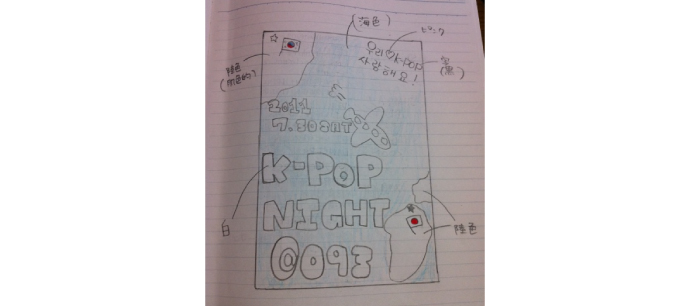 (海色)
ピンク
우리♡K-POP
사랑해요!
陸色
2011
7.30SAT
K-POP
NIGHT
@093
白
陸色